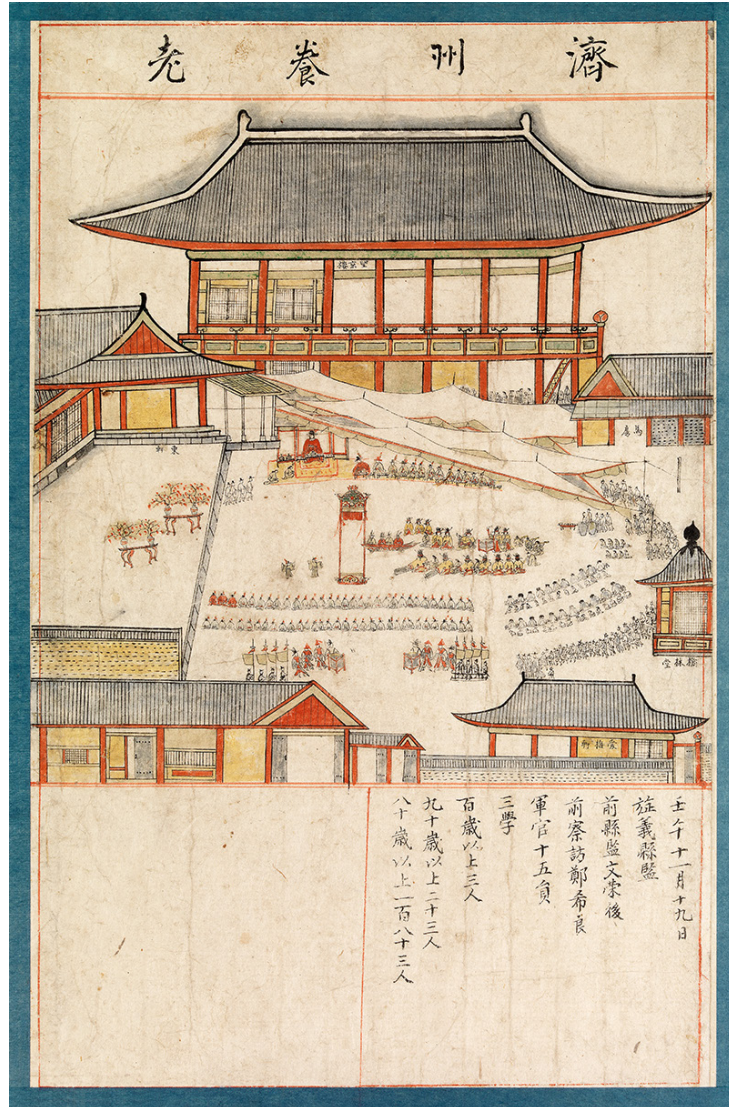 濟州養老
望京樓
東軒
馬廐
橘林堂
愛梅軒
壬午十一月十九日
旌義縣監
前縣監文榮後
前察訪鄭希良
軍官十五員
三學
百歲以上三人
九十歲以上二十三人
八十歲以上一百八十三人